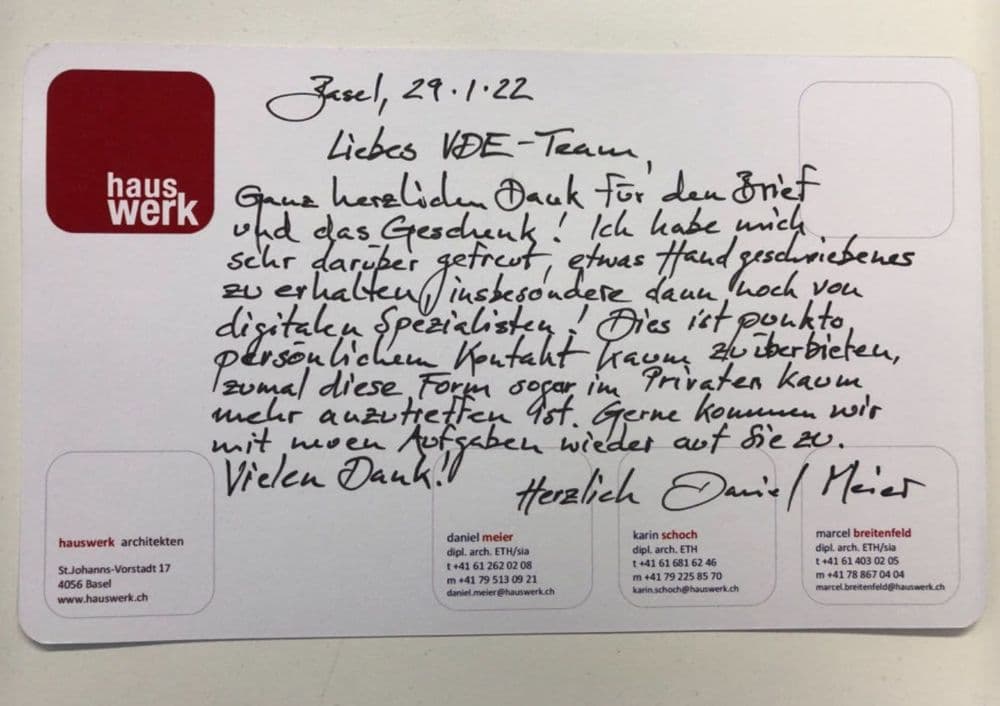 haus
werk
Basel, 29.1.22
Liebes VDE-Team,
Ganz herzlichen Dank für den Brief
und das Geschenk! Ich habe mich
sehr darüber gefreut, etwas Handgeschriebenes
zu erhalten, insbesondere dann noch von
digitalen Spezialisten! Dies ist punkto
persönlichem Kontakt kaum zu überbieten,
zumal diese Form sogar im Privaten kaum
mehr anzutreffen ist. Gerne kommen wir
mit neuen Aufgaben wieder auf Sie zu.
Vielen Dank!
Herzlich Daniel Meier
hauswerk architekten
St.Johanns-Vorstadt 17
4056 Basel
www.hauswerk.ch
daniel meier
dipl. arch. ETH/sia
t +41 61 262 02 08
m +41 79 513 09 21
daniel.meier@hauswerk.ch
karin schoch
dipl. arch. ETH
t +41 61 681 62 46
m +41 79 225 85 70
karin.schoch@hauswerk.ch
marcel breitenfeld
dipl. arch. ETH/sia
t +41 61 403 02 05
m +41 78 867 04 04
marcel.breitenfeld@hauswerk.ch